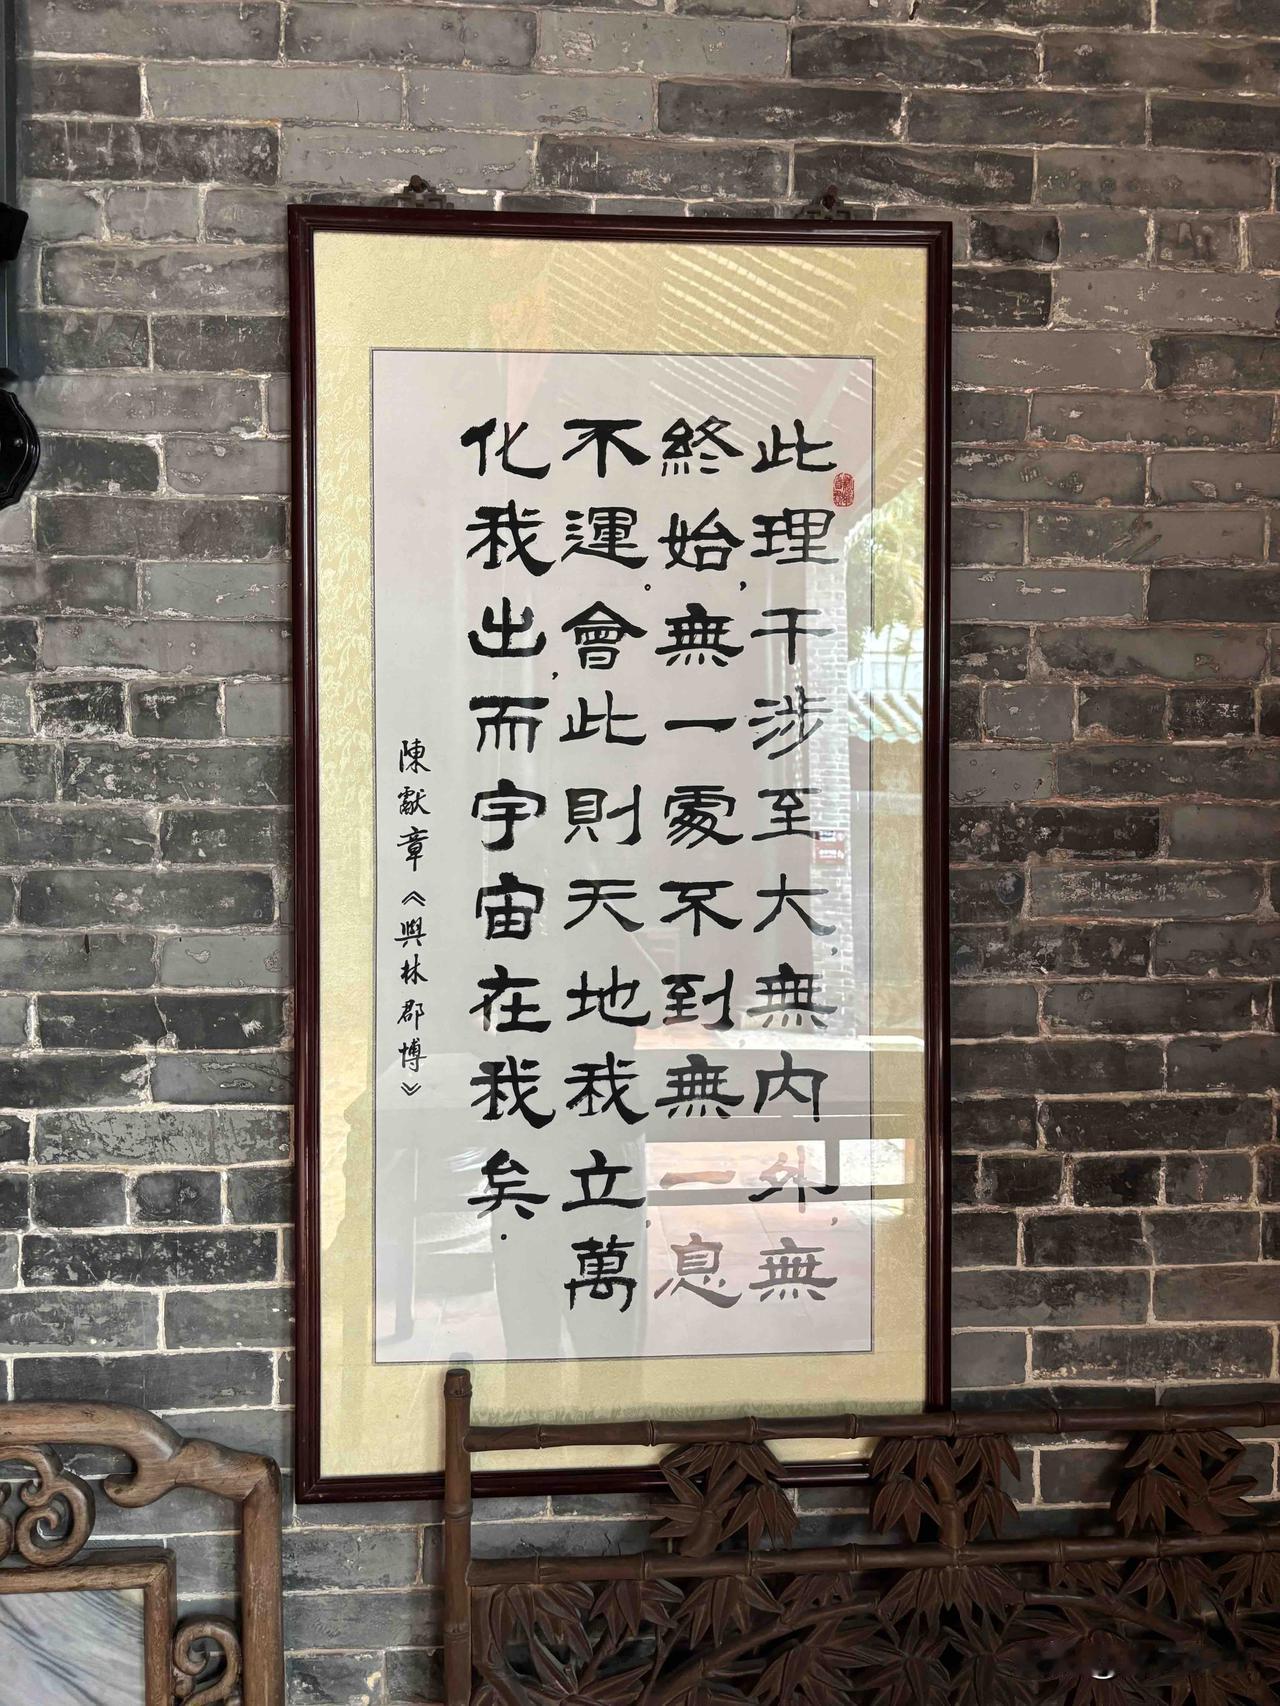 此理干涉至大，無内外，無
終始，無一處不到無一息，
不運。會此則天地我立萬
化我出，而宇宙在我矣．
陳獻章《與林郡博》